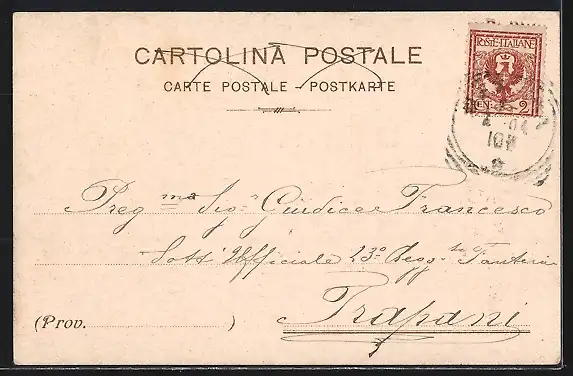 CARTOLINA POSTALE
CARTE POSTALE – POSTKARTE
POSTE·ITALIANE
CEN. 2
04
10
Preg.ma Sig.a Giudice Francesco
Sott' Ufficiale 23° Regg.to Fanteria
(Prov. )
Trapani